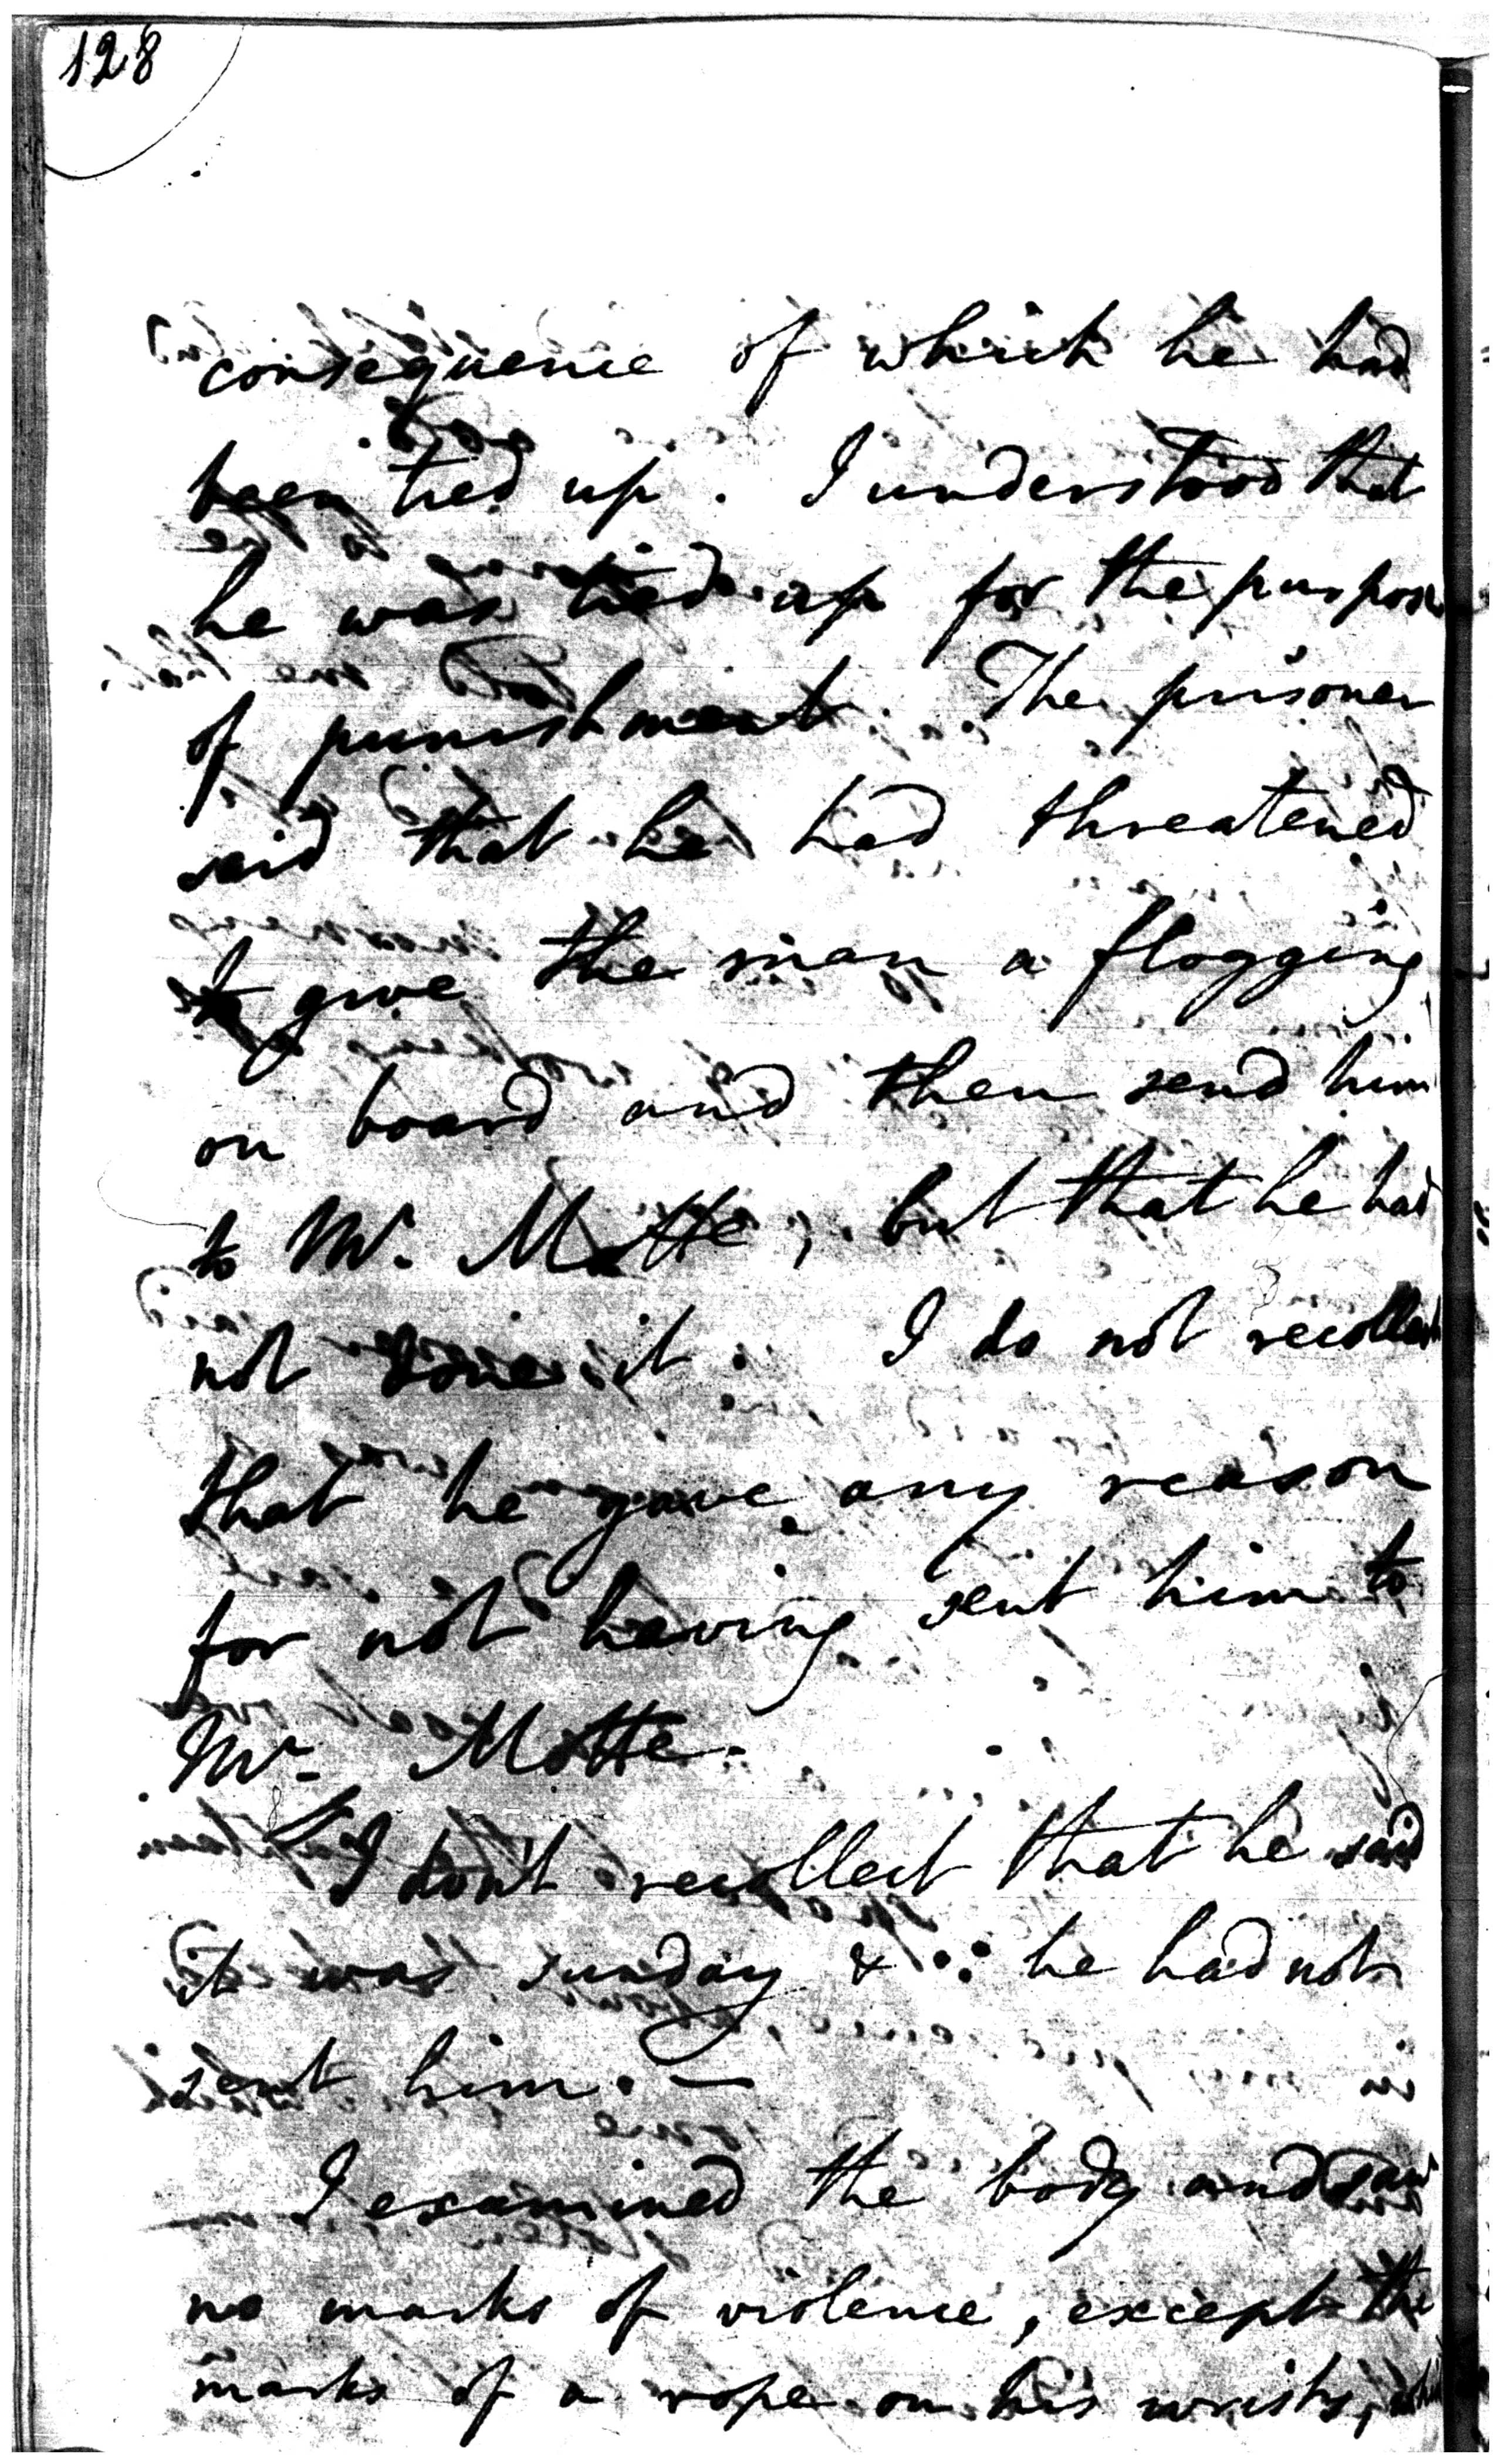 128
consequence of which he had
been tied up. I understood that
he was tied up for the purpose
of punishment. The prisoner
said that he had threatened
to give the man a flogging
on board and then send him
to Mr. Motte, but that he had
not done it. I do not recollect
that he gave any reason
for not having sent him to
Mr. Motte.
I don't recollect that he said
it was sunday & ∴ he had not
sent him. —
I examined the body and saw
no marks of violence, except the
marks of a rope on his wrists,